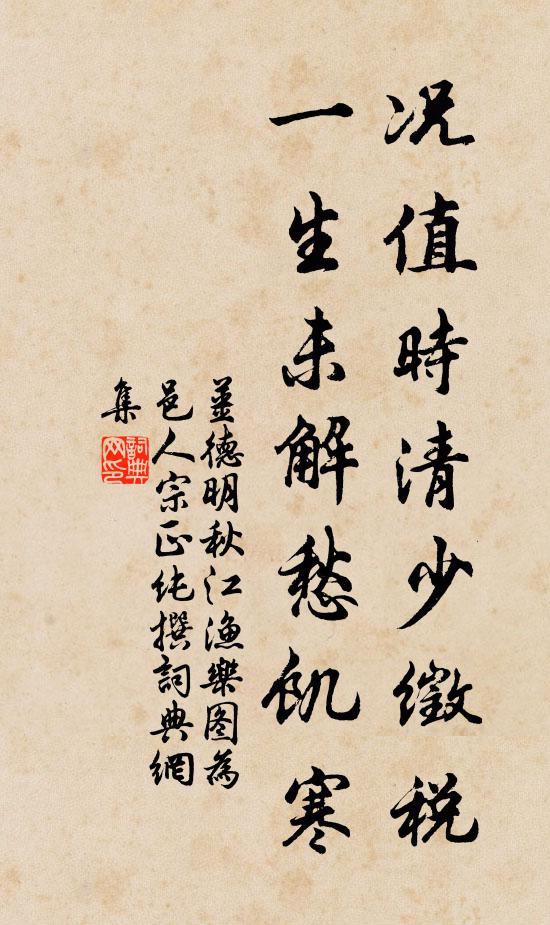 況值時清少徵税
一生未解愁飢寒
姜德明秋江漁樂图為
邑人宗正纯撰詞典網
集
詞典网印